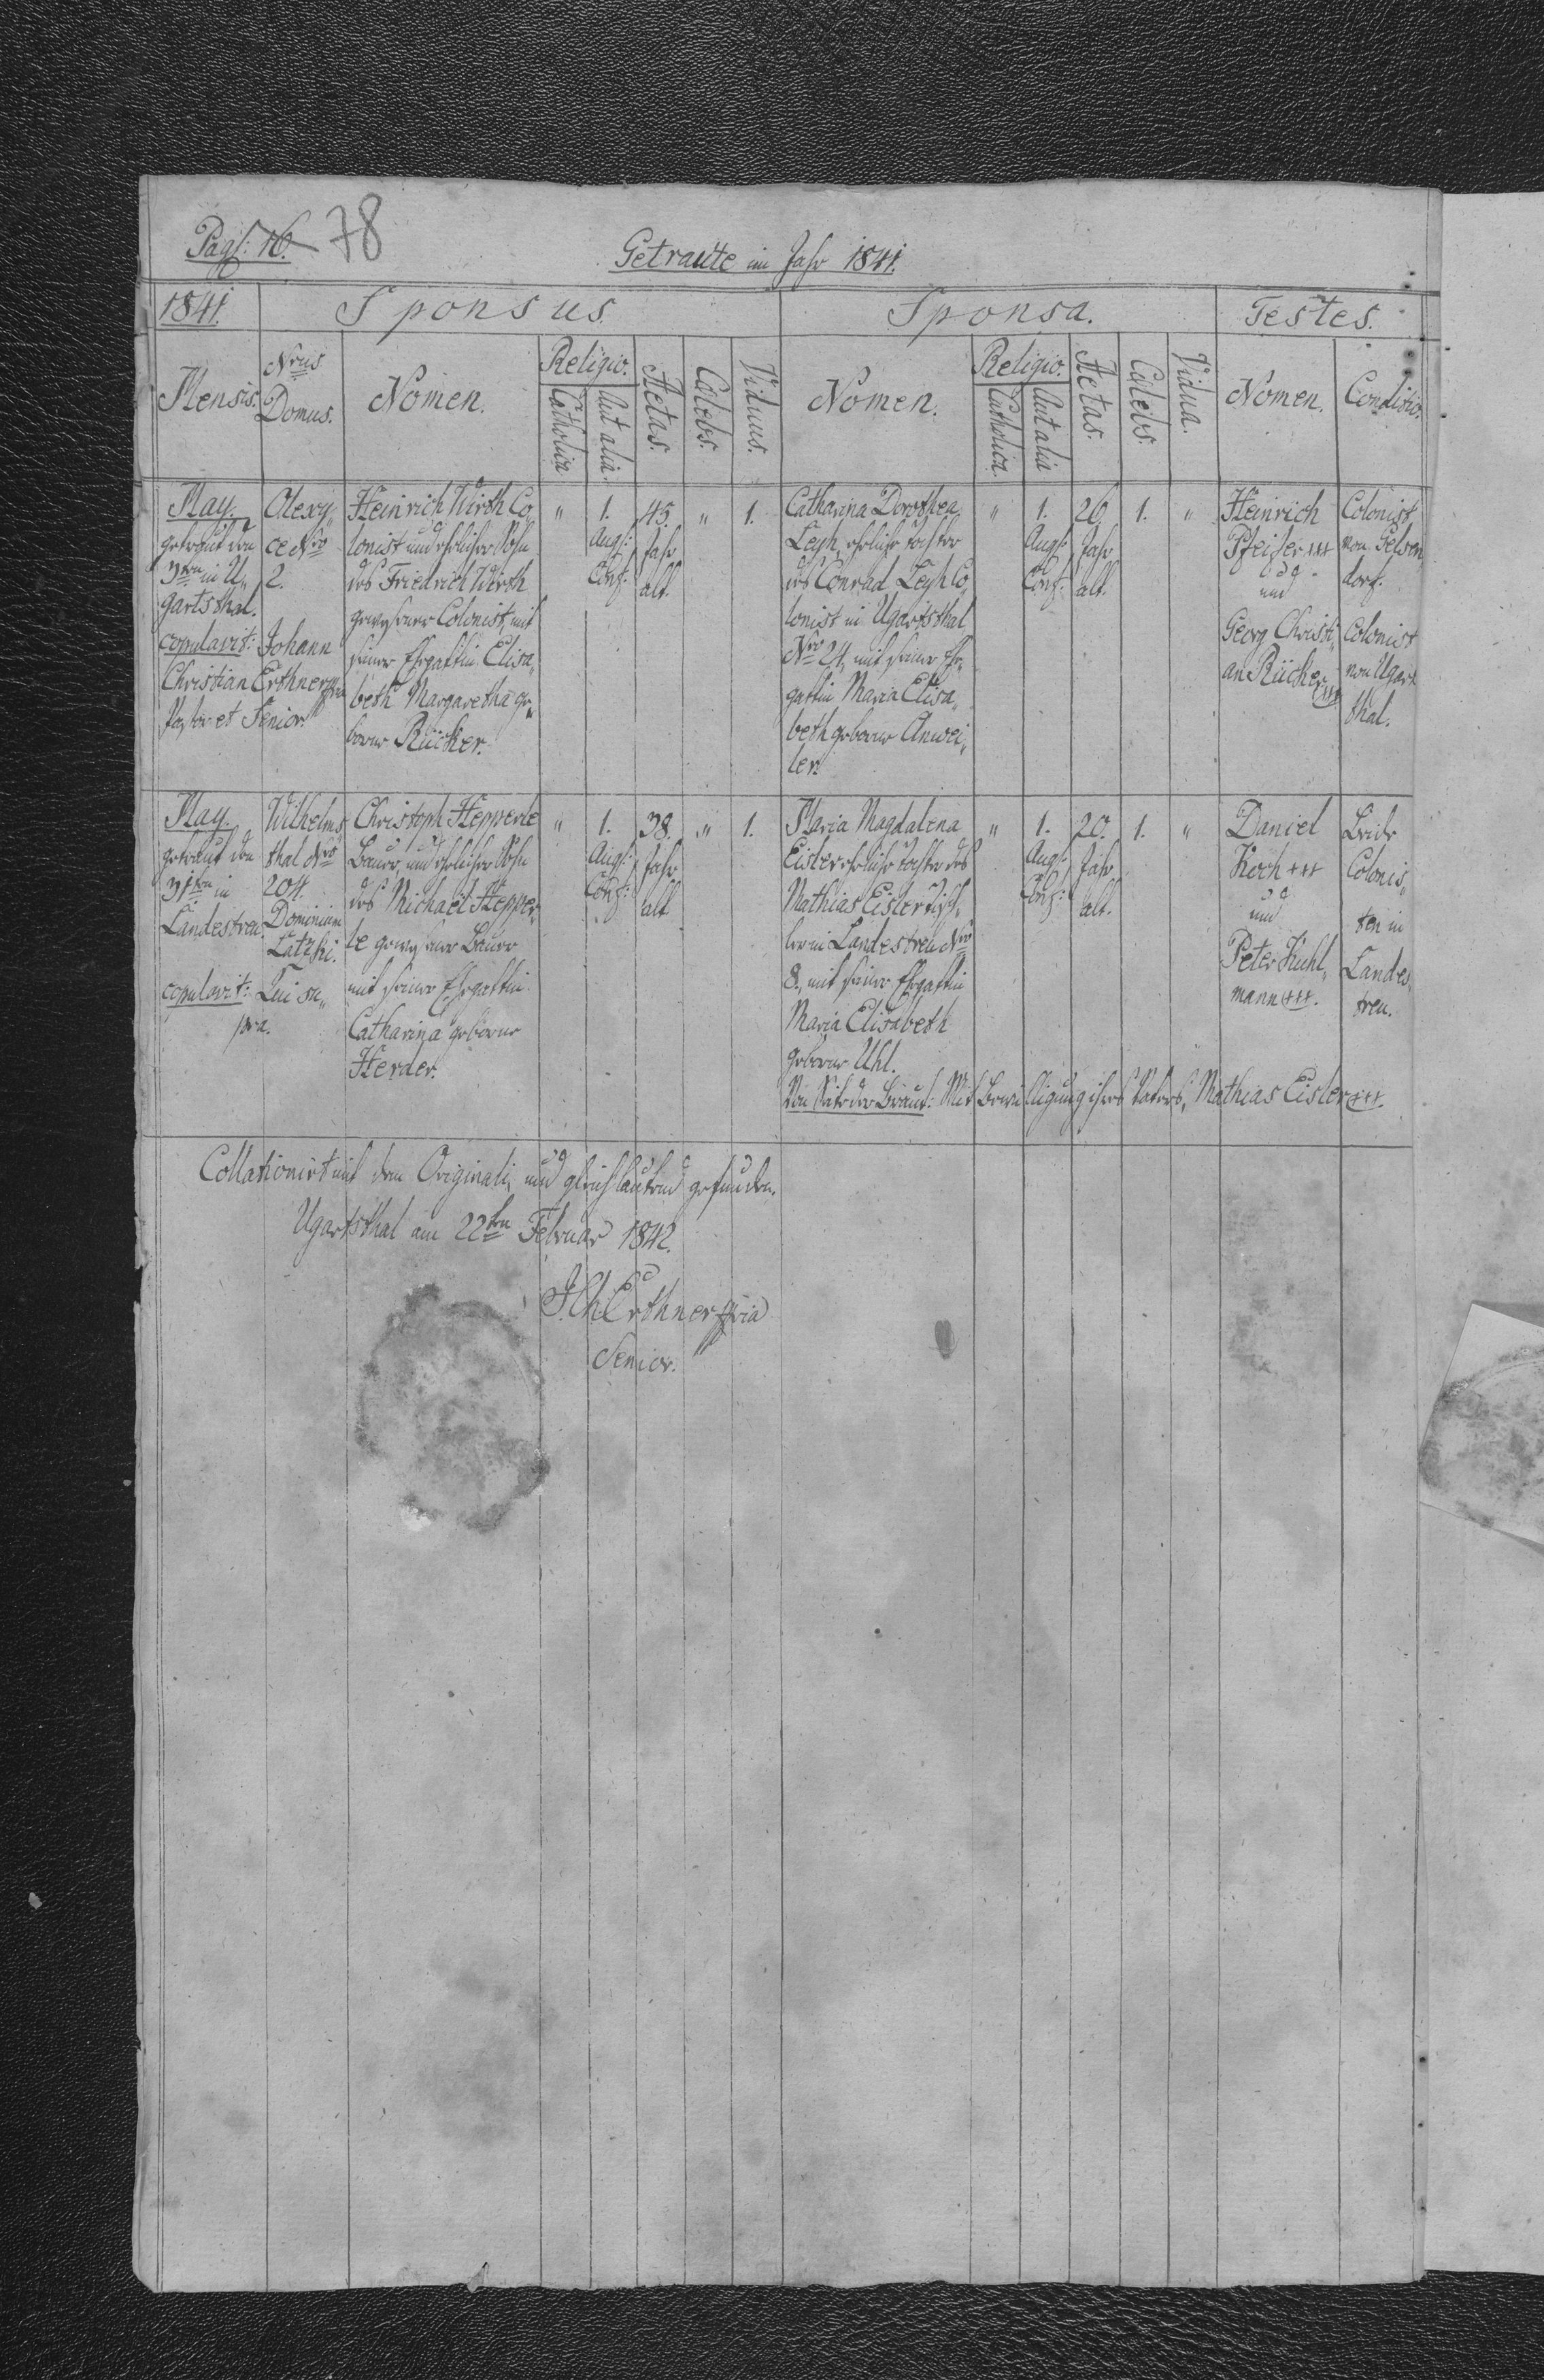 Pag: 16. 78
Getraute im Jahr 1841.
1841. Sponsus. Sponsa. Testes.
Mensis. Nrus Domus. Nomen. Religio. Catholica Aut alia. Aetas. Calebs. Viduus. Nomen. Religio. Catholica. Aut alia Aetas. Calebs. Vidua. Nomen. Conditio.
May.
getraut den
in U„
gartsthal.
copulavit: Johann
Christian Erthner mpria
Pastor et Senior.
Olexy„
ce Nro
2.
Heinrich Wirth Co„
lonist und ehelicher Sohn
des Friedrich Wirth
gewesener Colonist, mit
seiner Ehegattin Elisa„
beth Margaretha ge„
borne Rücker.
"
1.
Augs:
Conf:
45.
Jahr
alt.
"
1.
Catharina Dorothea
Leyh, eheliche Tochter
des Conrad Leyh Co„
lonist in Ugartsthal
Nro 24, mit seiner Ehe„
gattin Maria Elisa„
beth geborne Anwei„
ler.
"
1.
Augs:
Conf:
26.
Jahr
alt.
1.
"
Heinrich
Pfeifer +++
und
Georg Christi„
an Rücker +++
Colonist
von Gelsen„
dorf.
Colonist
von Ugarts
thal.
May.
getraut den
31ten in
Landestreu.
copulavit: Qui su„
pra.
Wilhelms„
thal Nro
204.
Dominium
Latzki.
Christoph Hepperle
Bauer, und ehelicher Sohn
des Michael Hepper„
le gewesener Bauer
mit seiner Ehegattin
Catharina geborne
Herder.
"
1.
Augs:
Conf:
38.
Jahr
alt
"
1.
Maria Magdalena
Eisler eheliche Tochter des
Mathias Eisler Tisch„
ler in Landestreu Nro
8., mit seiner Ehegattin
Maria Elisabeth
geborne Uhl.
"
1.
Augs:
Conf:
20.
Jahr
alt.
1.
"
Daniel
Koch +++
und
Peter Kuhl„
mann +++.
Beide
Colonis„
ten in
Landes„
treu.
Von Seite der Braut: Mit Bewilligung ihres Vaters, Mathias Eisler +++.
Collationirt mit dem Originali, und gleichlautend gefunden.
Ugartsthal am 22ten Februar 1842.
J. Ch. Erthner mpria
Senior.